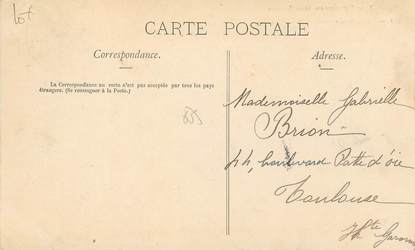 Lot
CARTE POSTALE
Correspondance.
Adresse.
La Correspondance au verso n'est pas acceptée par tous les pays
étrangers. (Se renseigner à la Poste.)
Mademoiselle Gabrielle
Brion
44, boulevard Patte d'oie
Toulouse
Hte Garonne